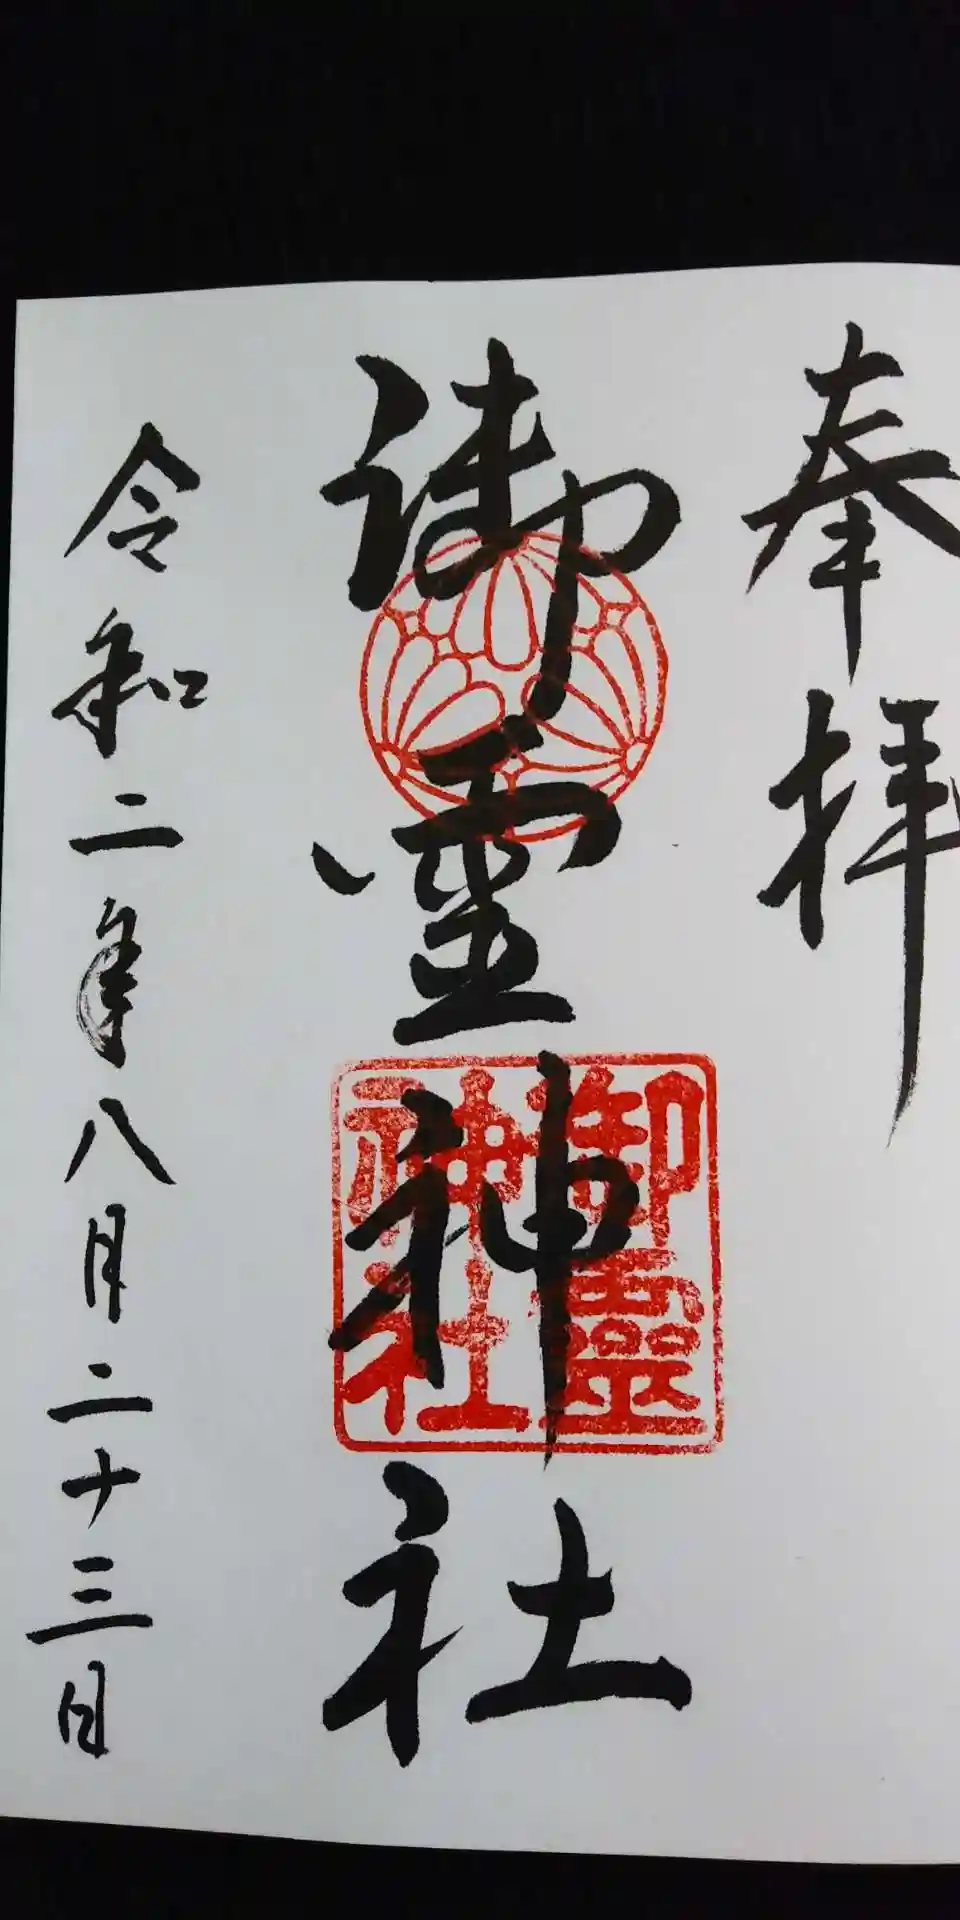 奉拝
御霊神社
御霊
神社
令和二年八月二十三日